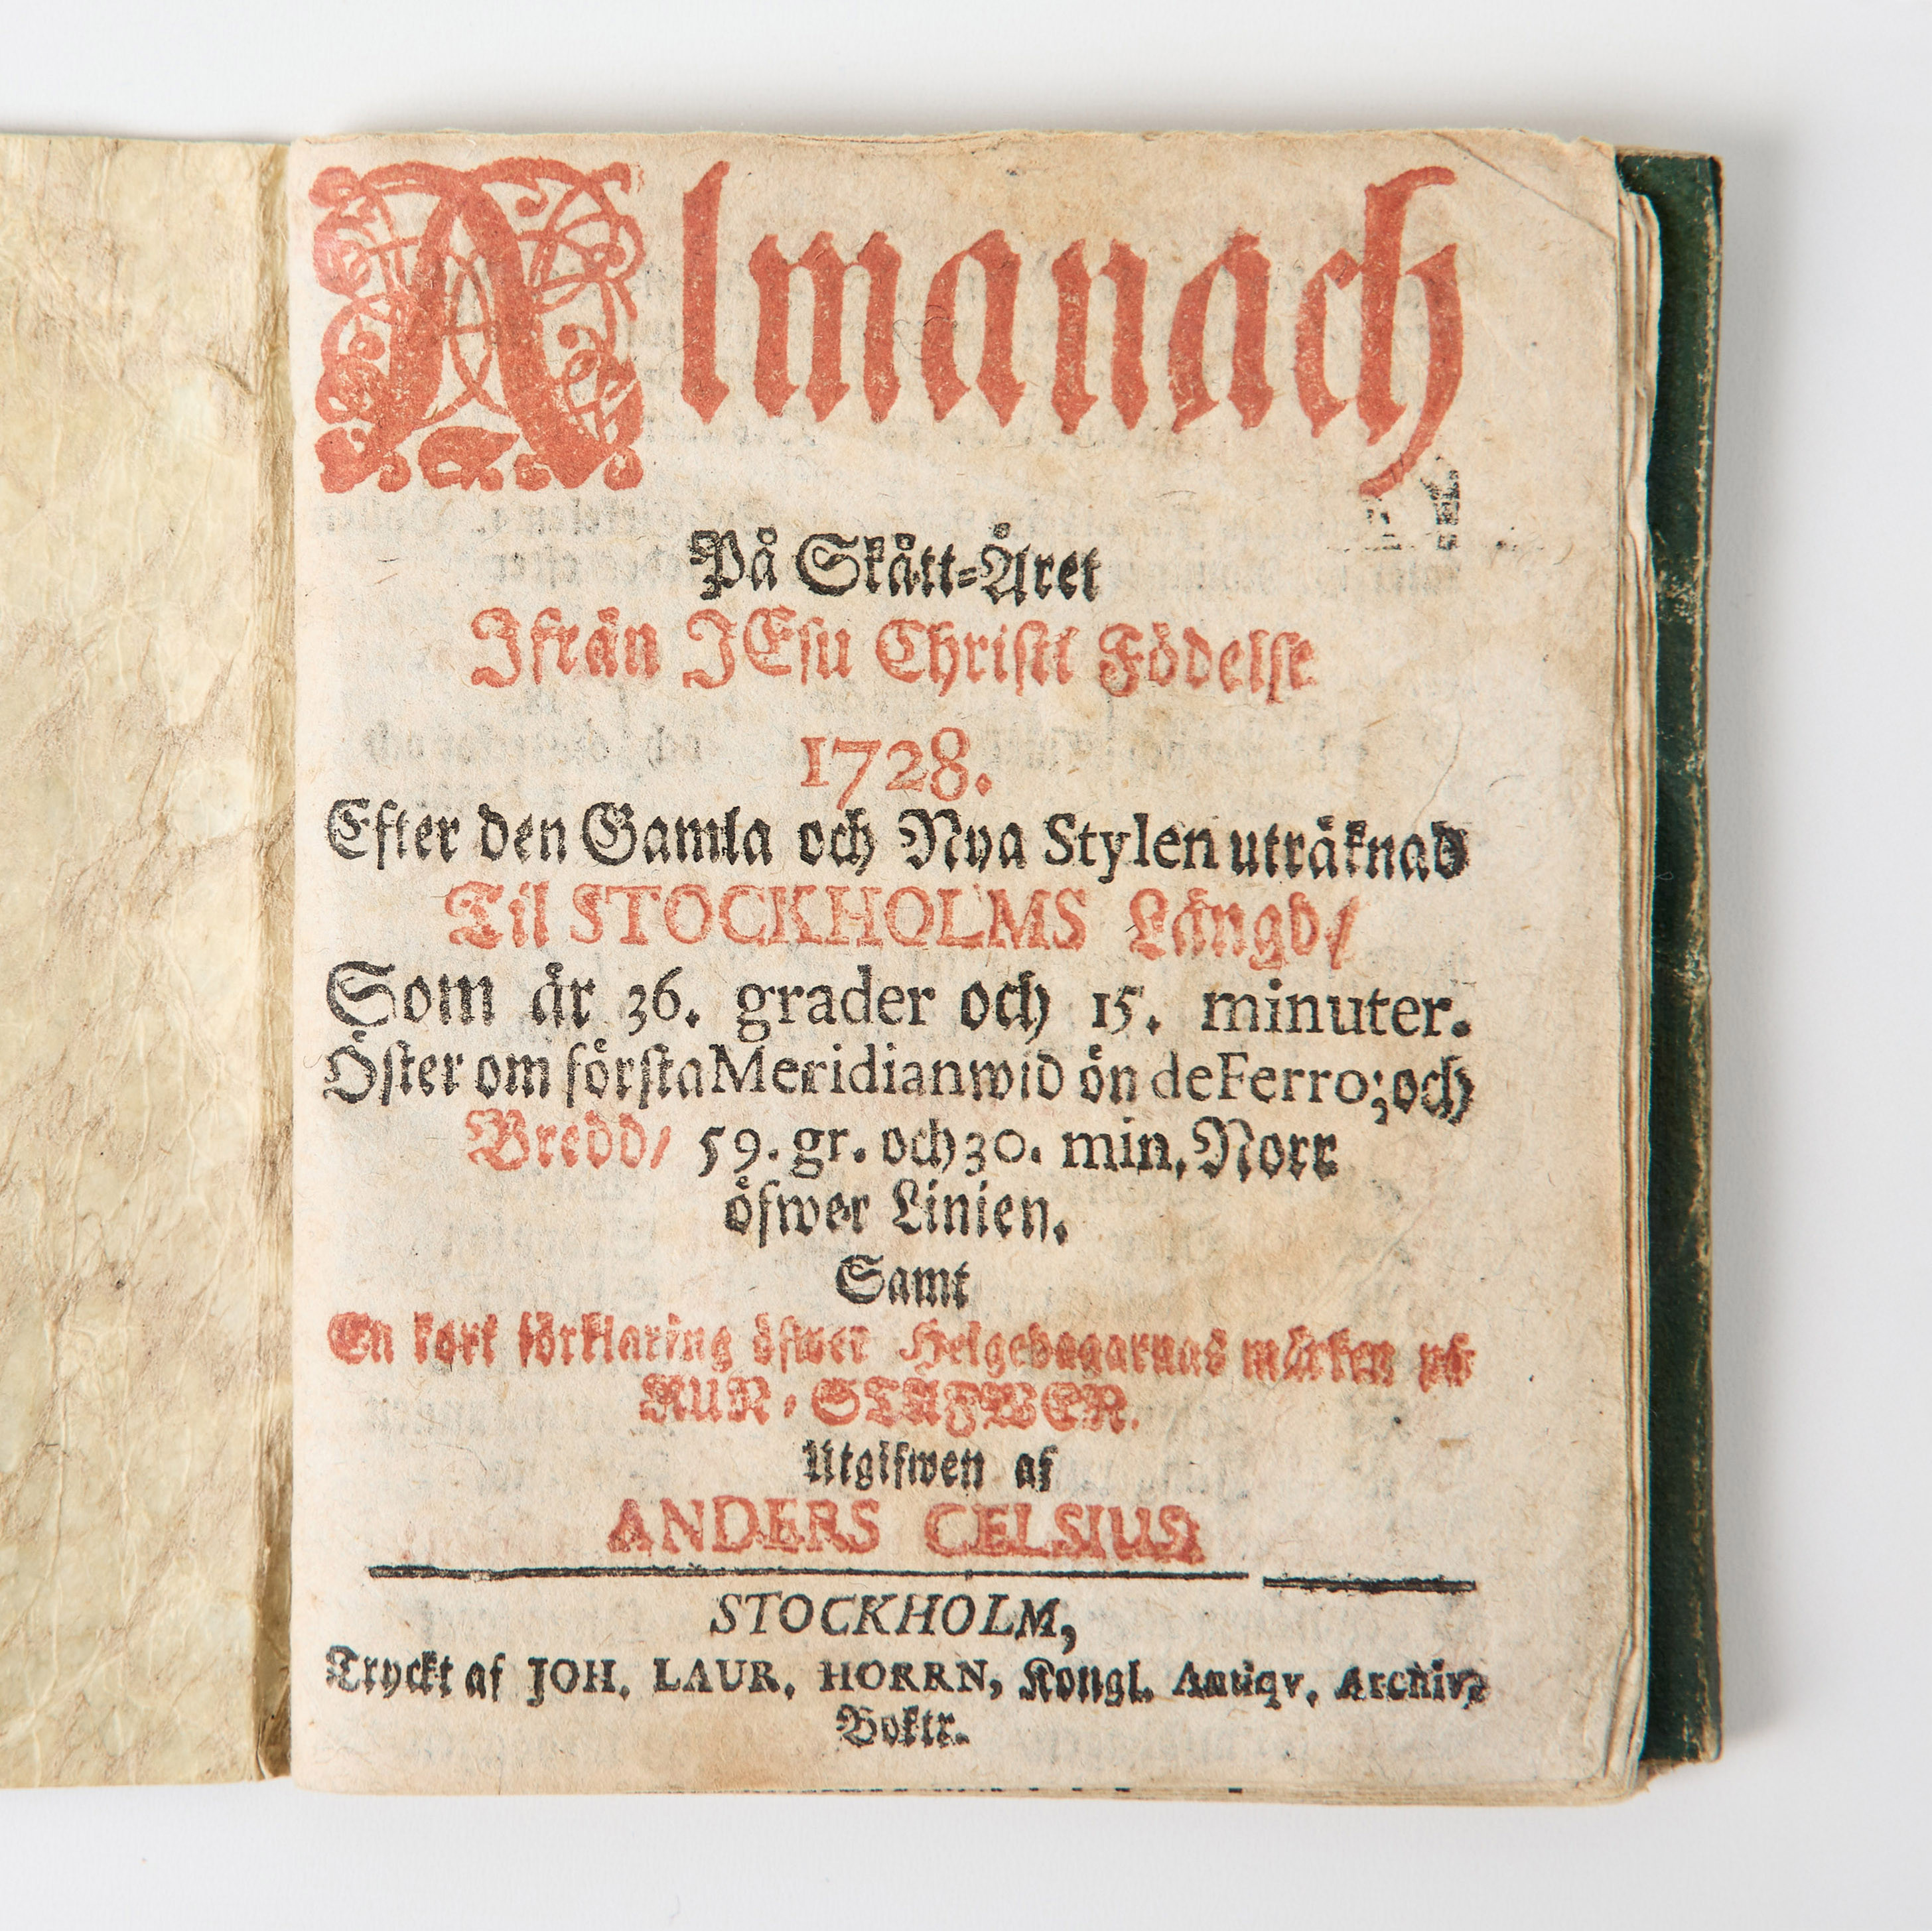 Almanach
På Skått-Året
Ifrån JEsu Christi Födelse
1728.
Efter den Gamla och Nya Stylen uträknad
Til STOCKHOLMS Längd/
Som är 36. grader och 15. minuter.
Öster om första Meridian wid ön de Ferro; och
Bredd/ 59. gr. och 30. min. Norr
öfwer Linien.
Samt
En kort förklaring öfwer Helgedagarnas märken på
RUN-STAFWEN.
Utgifwen af
ANDERS CELSIUS
STOCKHOLM,
Tryckt af JOH. LAUR. HORRN, Kongl. Antiqv. Archiv.
Boktr.